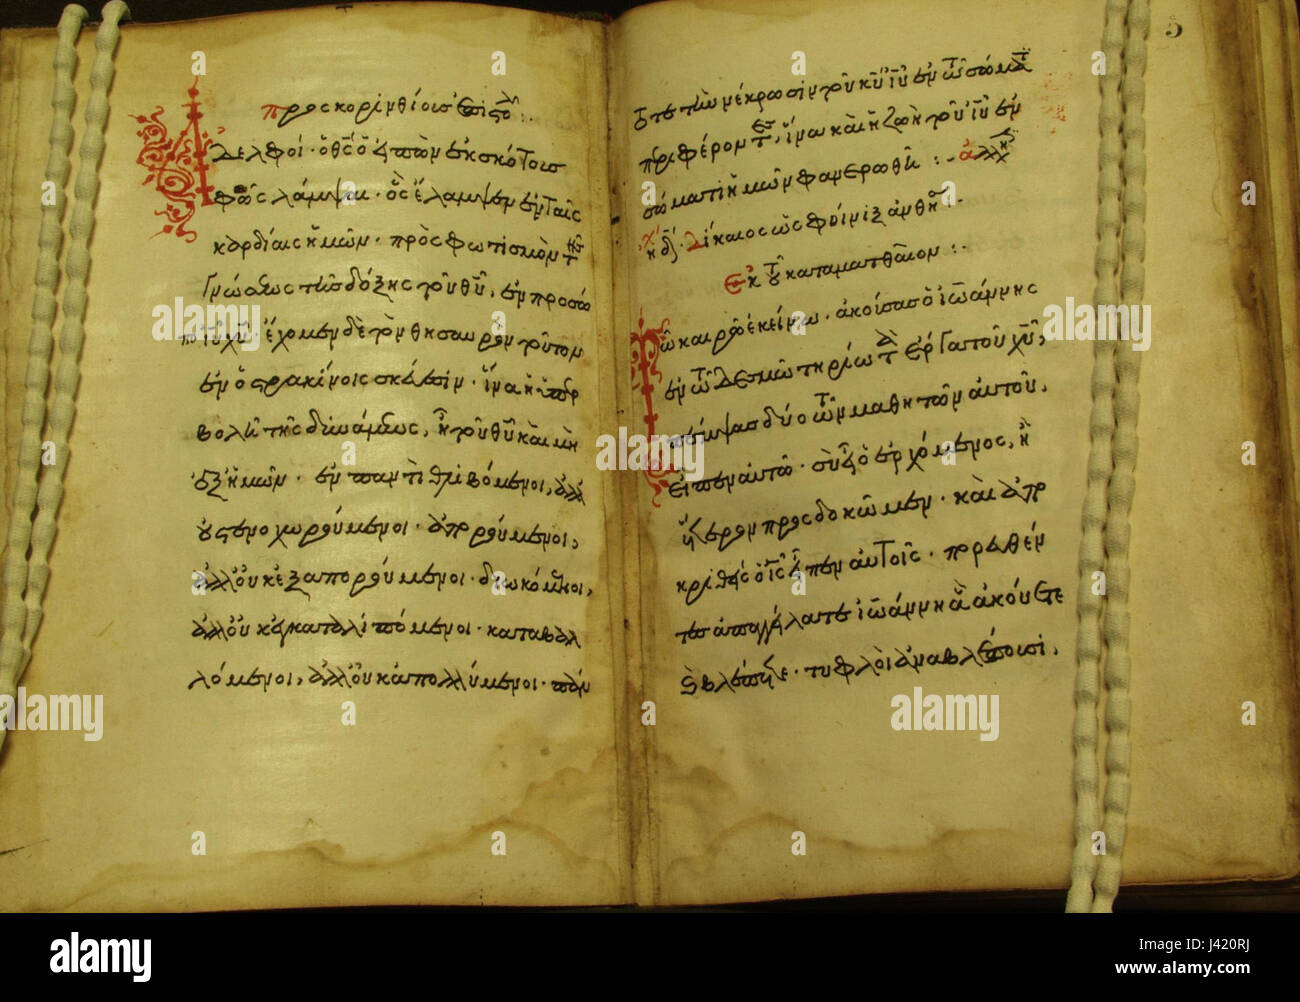 πρὸς κορινθίους ἐπιστολ :.
Ἀδελφοί · ὁ θς ὁ εἰπὼν ἐκ σκότους
φῶς λάμψαι · ὃς ἔλαμψεν ἐν ταῖς
καρδίαις ἡμῶν · πρὸς φωτισμὸν τῆς
γνώσεως τῆς δόξης τοῦ θῦ, ἐν προσώ
πω ἰῦ χῦ · ἔχομεν δὲ τὸν θησαυρὸν τοῦτον
ἐν ὀστρακίνοις σκεύεσιν · ἵνα ἡ ὑπερ
βολὴ τῆς δυνάμεως, ᾖ τοῦ θῦ καὶ μὴ
ἐξ ἡμῶν · ἐν παντὶ θλιβόμενοι, ἀλλ
οὐ στενοχωρούμενοι · ἀπορούμενοι,
ἀλλ οὐκ ἐξαπορούμενοι · διωκόμενοι,
ἀλλ οὐκ ἐγκαταλιπόμενοι · καταβαλ
λόμενοι, ἀλλ οὐκ ἀπολλύμενοι · πάν
5
τοτε τὴν νέκρωσιν τοῦ κῦ ἰῦ ἐν τῶ σώματι
περιφέροντες, ἵνα καὶ ἡ ζωὴ τοῦ ἰῦ ἐν
σώματι ἡμῶν φανερωθῆ :- ἀλλη
δίκαιος ὡς φοῖνιξ ἀνθή .-
ἐκ τοῦ κατα ματθαῖον :.
Τῶ καιρῶ ἐκείνω · ἀκούσας ὁ ἰωάννης
ἐν τῶ δεσμωτηρίω τὰ ἔργα τοῦ χῦ,
πέμψας δύο τῶν μαθητῶν αὐτοῦ,
εἶπεν αὐτῶ · σὺ εἶ ὁ ἐρχόμενος, ἢ
ἕτερον προσδοκῶμεν · καὶ ἀπο
κριθεὶς ὁ ἰς εἶπεν αὐτοῖς · πορευθέν
τες ἀπαγγείλατε ἰωάννη ἃ ἀκούετε
καὶ βλέπετε · τυφλοὶ ἀναβλέπουσι,
alamy
J420RJ
www.alamy.com